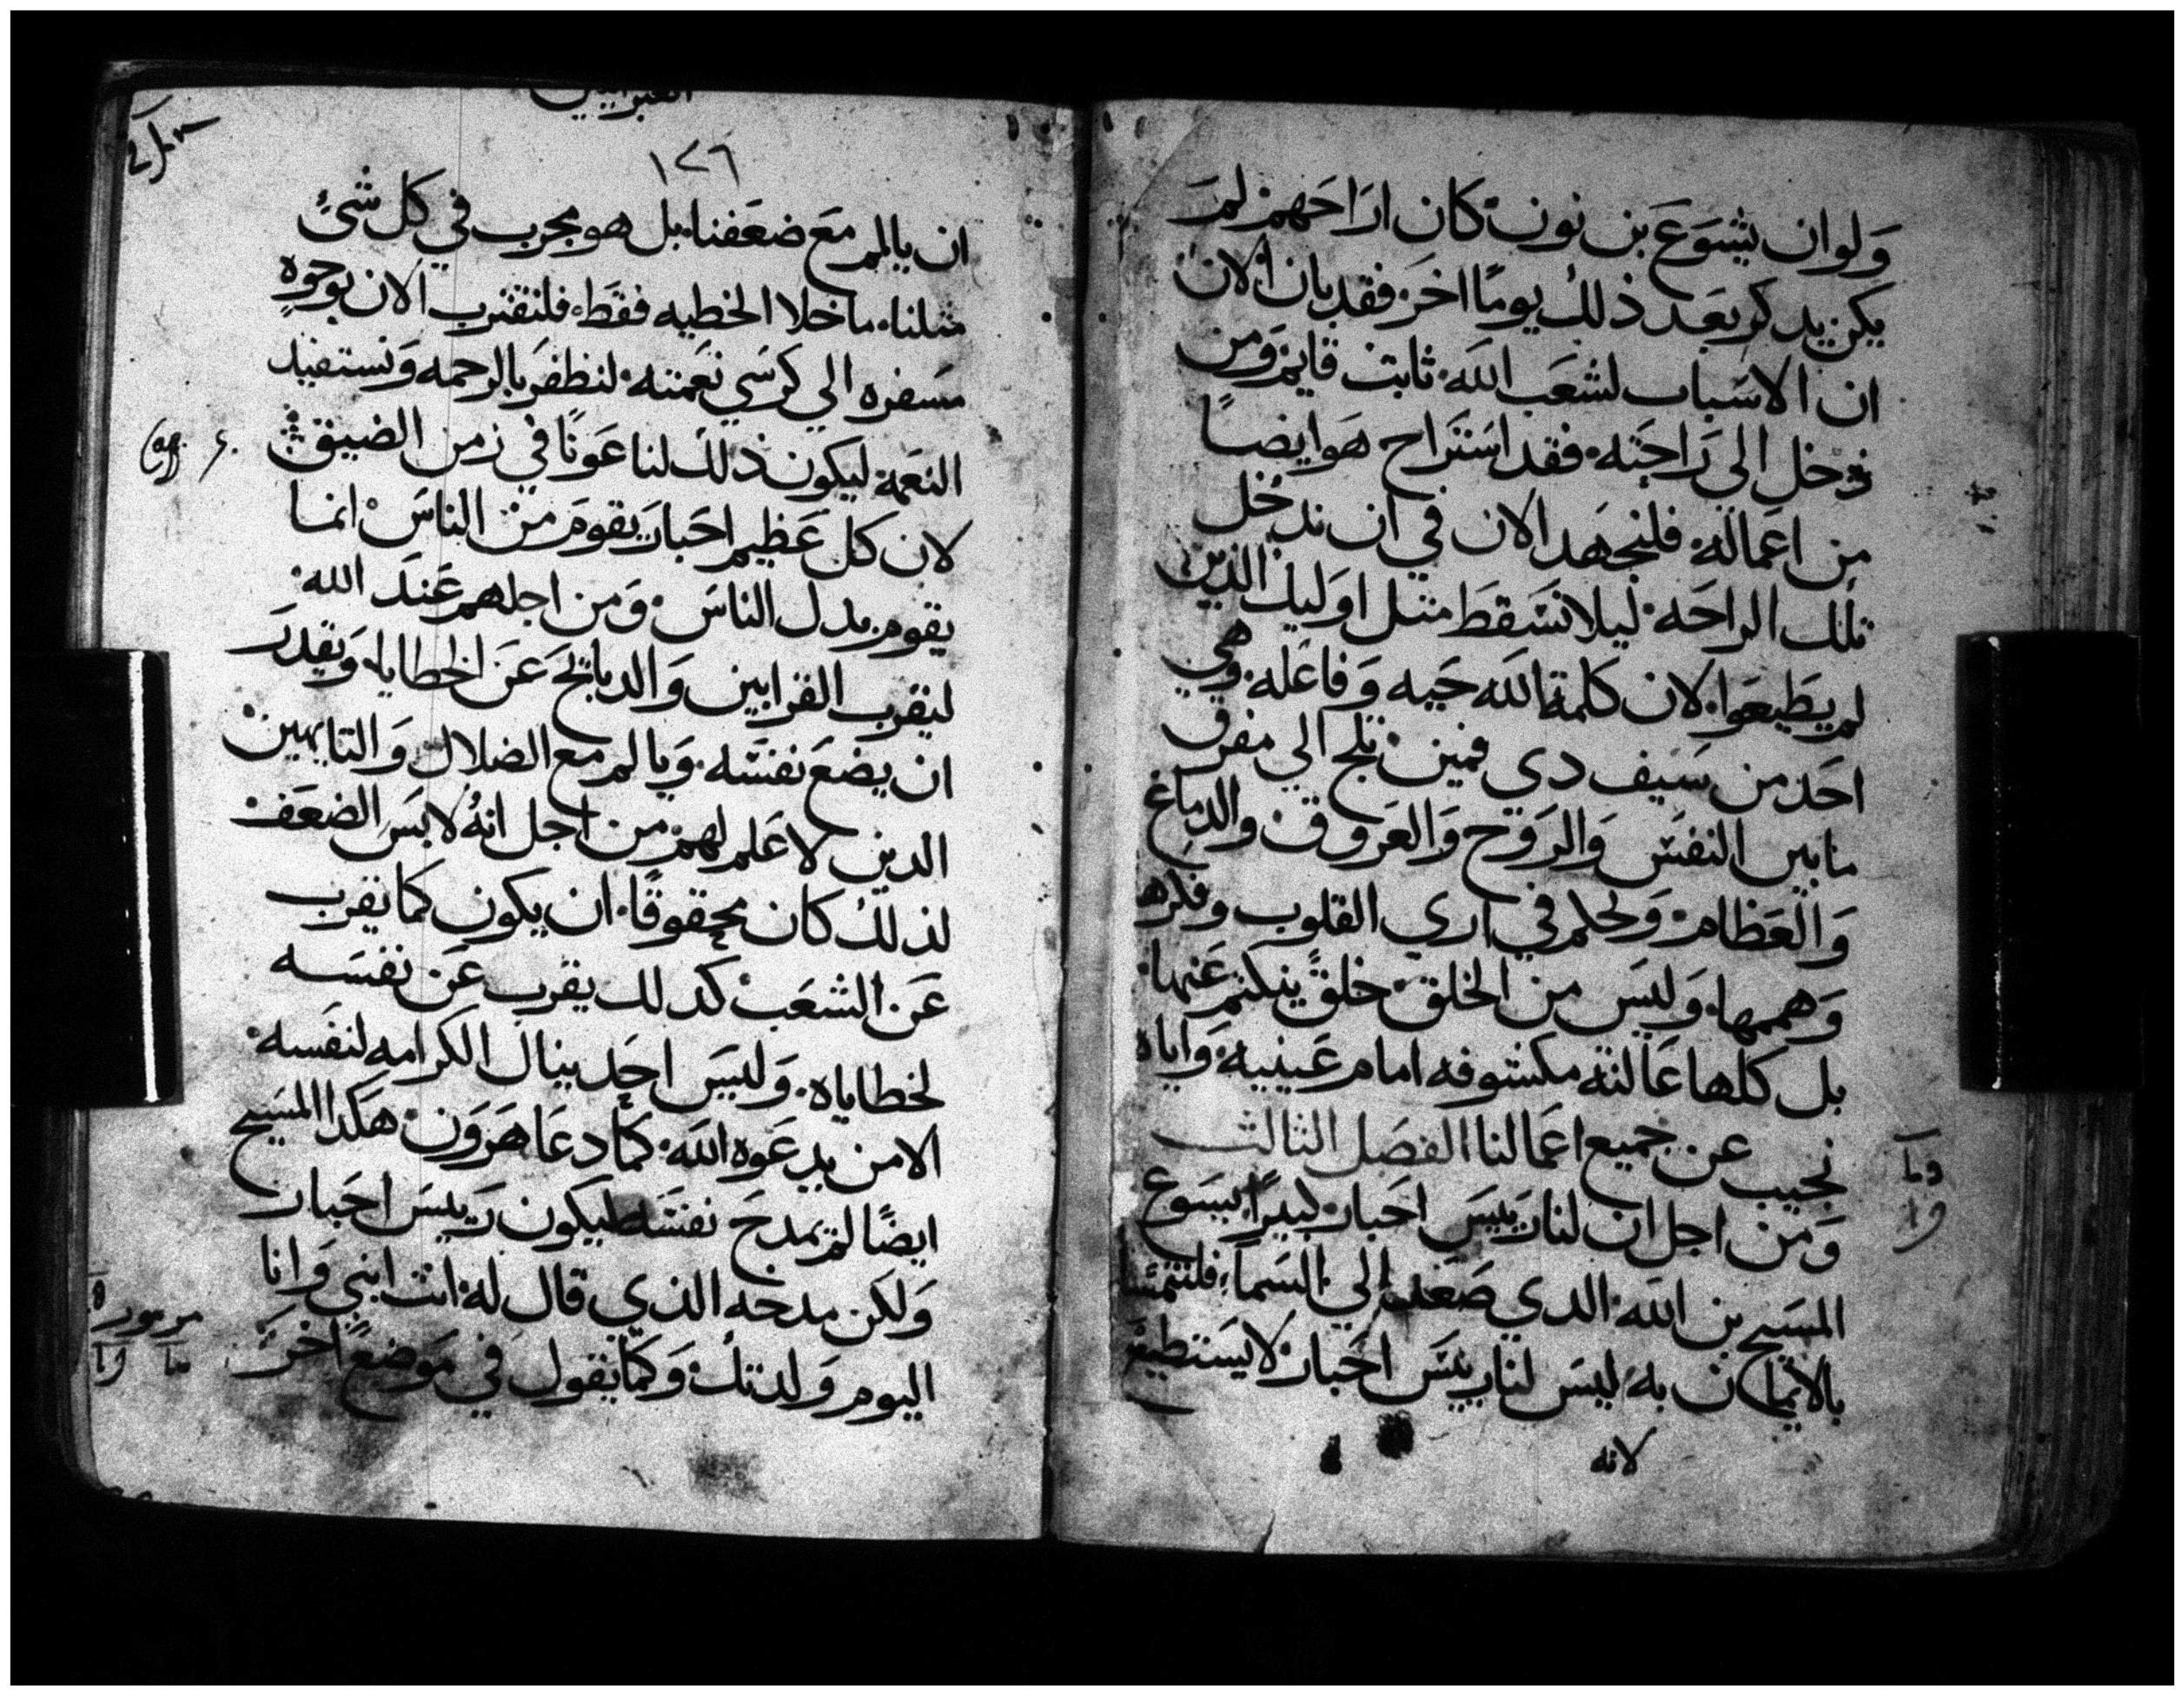 ولو ان يشوع بن نون كان اراحهم لم
يكن يدكر بعد ذلك يومًا اخر فقد بان الان
ان الاسباب لشعب الله ثابت قايم ومن
دخل الي راحته فقد استراح هو ايضاً
من اعماله فلنجهد الان في ان ندخل
تلك الراحه ليلا نسقط مثل اوليك الذين
لم يطيعوا لان كلمة الله حيه وفاعله وهي
احد من سيف دي فمين تلج الي مفرق
ما بين النفس والروح والعروق والدماغ
والعظام وتحكم في اري القلوب وفكرها
وهممها وليس من الخلق خلق ينكتم عنها
بل كلها عالنة مكشوفه امام عينيه واياه
نجيب عن جميع اعمالنا الفصل الثالث
ومن اجل ان لنا رييس احبار كبيرًا يسوع
المسيح بن الله الدي صعد الي السما فلنتمسك
بالايمان به ليس لنا رييس احبار لا يستطيع
لانه
العبرانيين
١٢٦
ان يالم مع ضعفنا بل هو مجرب في كل شئ
مثلنا ما خلا الخطيه فقط فلنقترب الان بوجوه
مسفره الي كرسي نعمته لنظفر بالرحمه ونستفيد
النعمة ليكون ذلك لنا عونًا في زمن الضيق
لان كل عظيم احبار يقوم من الناس انما
يقوم بدل الناس ومن اجلهم عند الله
ليقرب القرابين والدبايح عن الخطايا ويقدر
ان يضع نفسه ويالم مع الضلال والتايهين
الدين لا علم لهم من اجل انه لابس الضعف
لذلك كان محقوقًا ان يكون كما يقرب
عن الشعب كدلك يقرب عن نفسه
لخطاياه وليس احد ينال الكرامه لنفسه
الا من يدعوه الله كما دعا هرون هكدا المسيح
ايضًا لم يمدح نفسه ليكون رييس احبار
ولكن مدحه الذي قال له انت ابني وانا
اليوم ولدتك وكما يقول في موضع اخر
مزمور